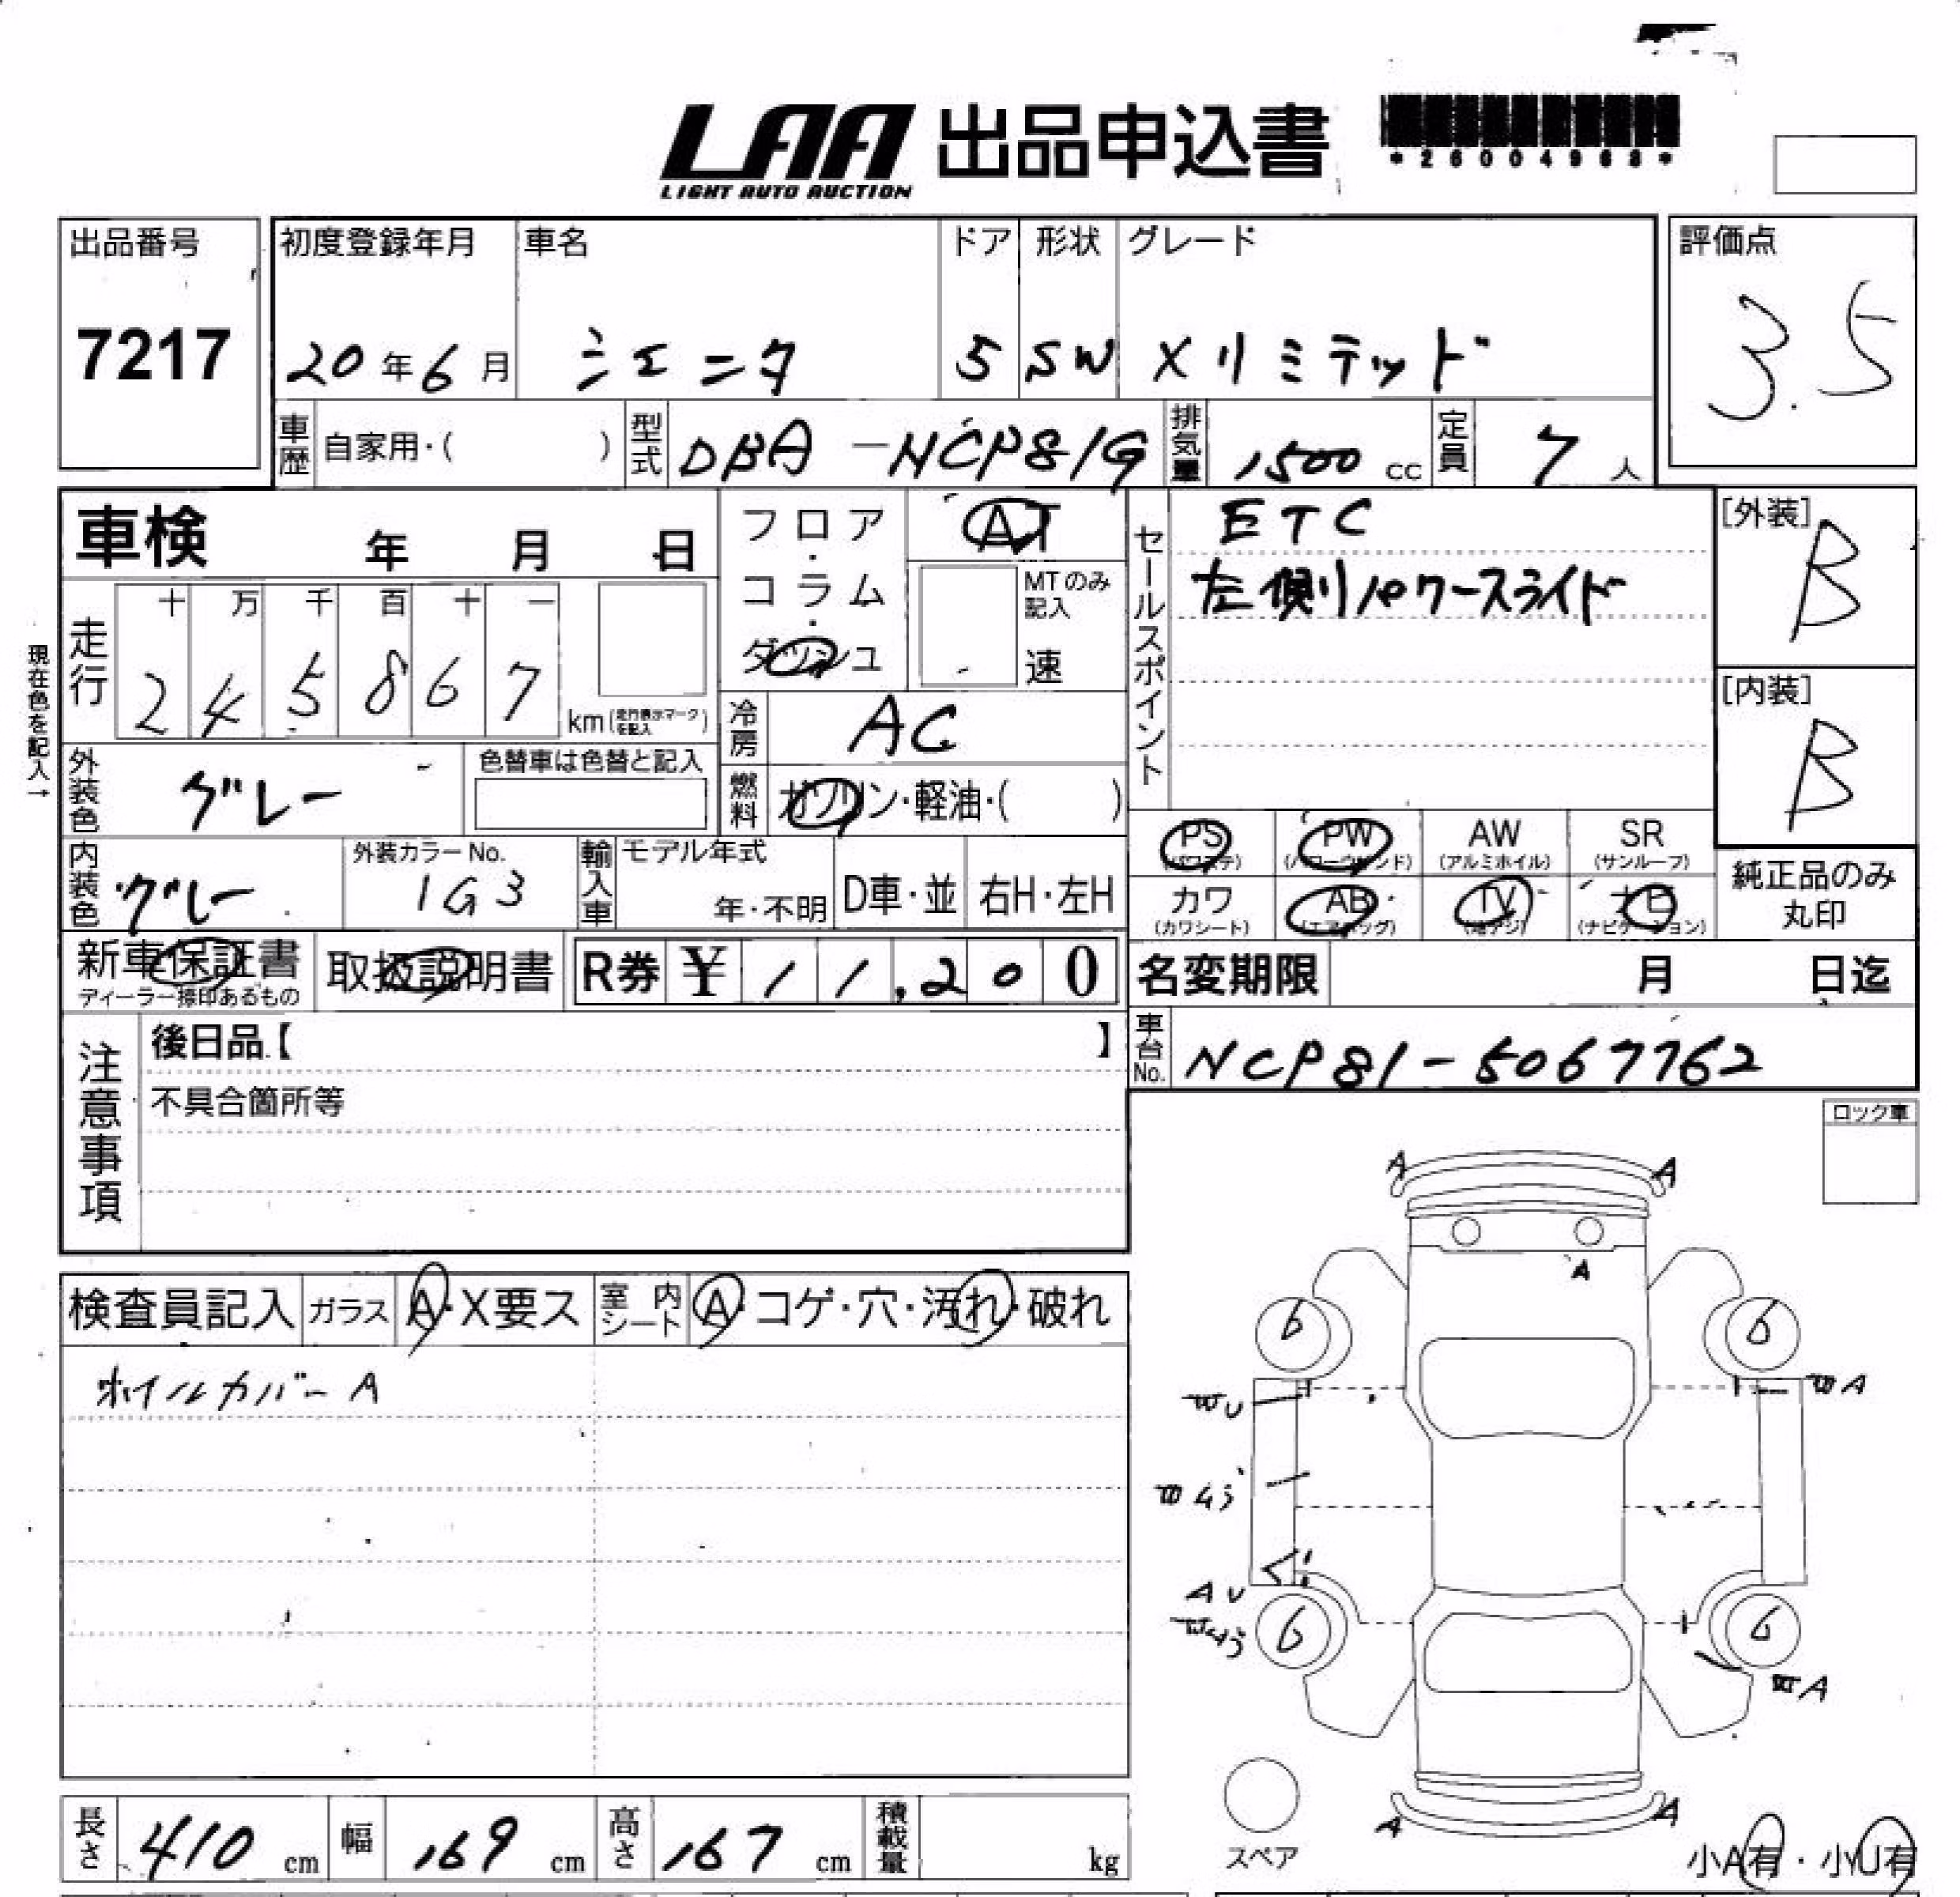 LAA 出品申込書
LIGHT AUTO AUCTION
*26004968*
出品番号
7217
初度登録年月
20年6月
車名
シエンタ
ドア
5
形状
SW
グレード
Xリミテッド
評価点
3.5
車歴 自家用・( )
型式 DBA-NCP81G
排気量 1500 cc
定員 7人
車検 年 月 日
フロア・コラム・ダッシュ
AT
MTのみ記入
速
セールスポイント
ETC
左側パワースライド
[外装]
B
[内装]
B
現在色を記入→
走行
十 万 千 百 十 一
2 4 5 8 6 7
km(走行表示マークを記入)
冷房 AC
外装色 グレー
色替車は色替と記入
燃料 ガソリン・軽油・( )
PS (パワステ)
PW (パワーウィンド)
AW (アルミホイル)
SR (サンルーフ)
カワ (カワシート)
AB (エアバッグ)
TV (地デジ)
ナビ (ナビゲーション)
純正品のみ丸印
内装色 グレー
外装カラーNo.
1G3
輸入車
モデル年式
年・不明
D車・並
右H・左H
新車保証書
ディーラー捺印あるもの
取扱説明書
R券 ¥11,200
名変期限 月 日迄
車台No. NCP81-5067762
注意事項
後日品【 】
不具合箇所等
ロック車
検査員記入
ガラス A・X要ス
室内シート A・コゲ・穴・汚れ・破れ
ホイルカバーA
A A
A
6 6
WU WA
AU
6 6
A A
スペア
小A有・小U有
長さ 410 cm
幅 169 cm
高さ 167 cm
積載量 kg